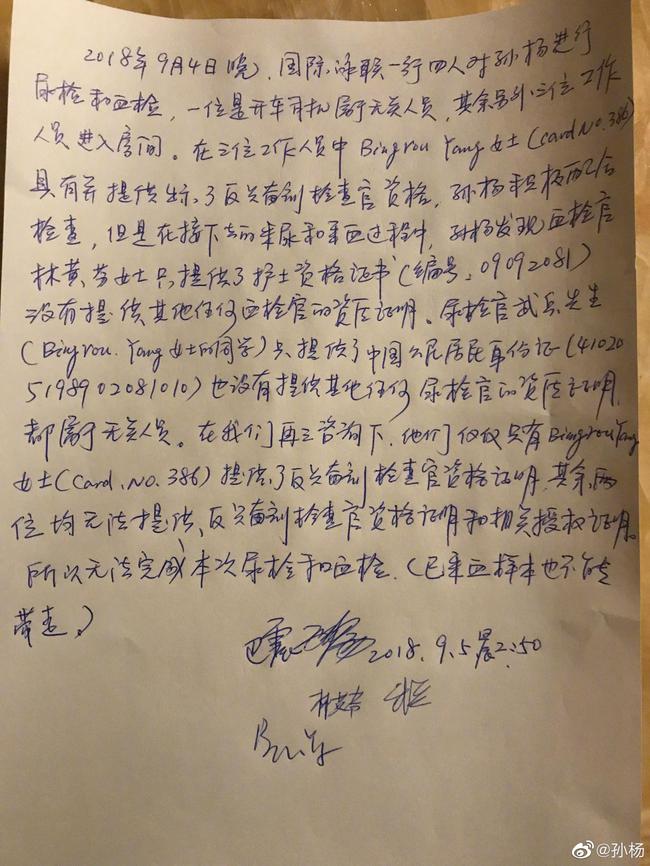 2018年9月4日晚,国际泳联一行四人对孙杨进行
尿检和血检,一位是开车司机属于无关人员,其余另外三位工作
人员进入房间。在三位工作人员中Bingrou Yang女士(card No.386)
具有并提供出示了反兴奋剂检查官资格,孙杨积极配合
检查,但是在接下去的采尿和采血过程中,孙杨发现血检官
林黄芬女士只提供了护士资格证书(编号:09092081)
没有提供其他任何血检官的资质证明。尿检官武兵先生
(Bingrou.Yang女士的同学)只提供了中国公民居民身份证(41020
5198902081010)也没有提供其他任何尿检官的资质证明,
都属于无关人员。在我们再三咨询下,他们仅仅只有Bingrou Yang
女士(Card.No.386)提供了反兴奋剂检查官资格证明,其余两
位均无法提供反兴奋剂检查官资格证明和相关授权证明。
所以无法完成本次尿检和血检.(已采血样本也不能
带走。)
2018.9.5晨2:50
@孙杨